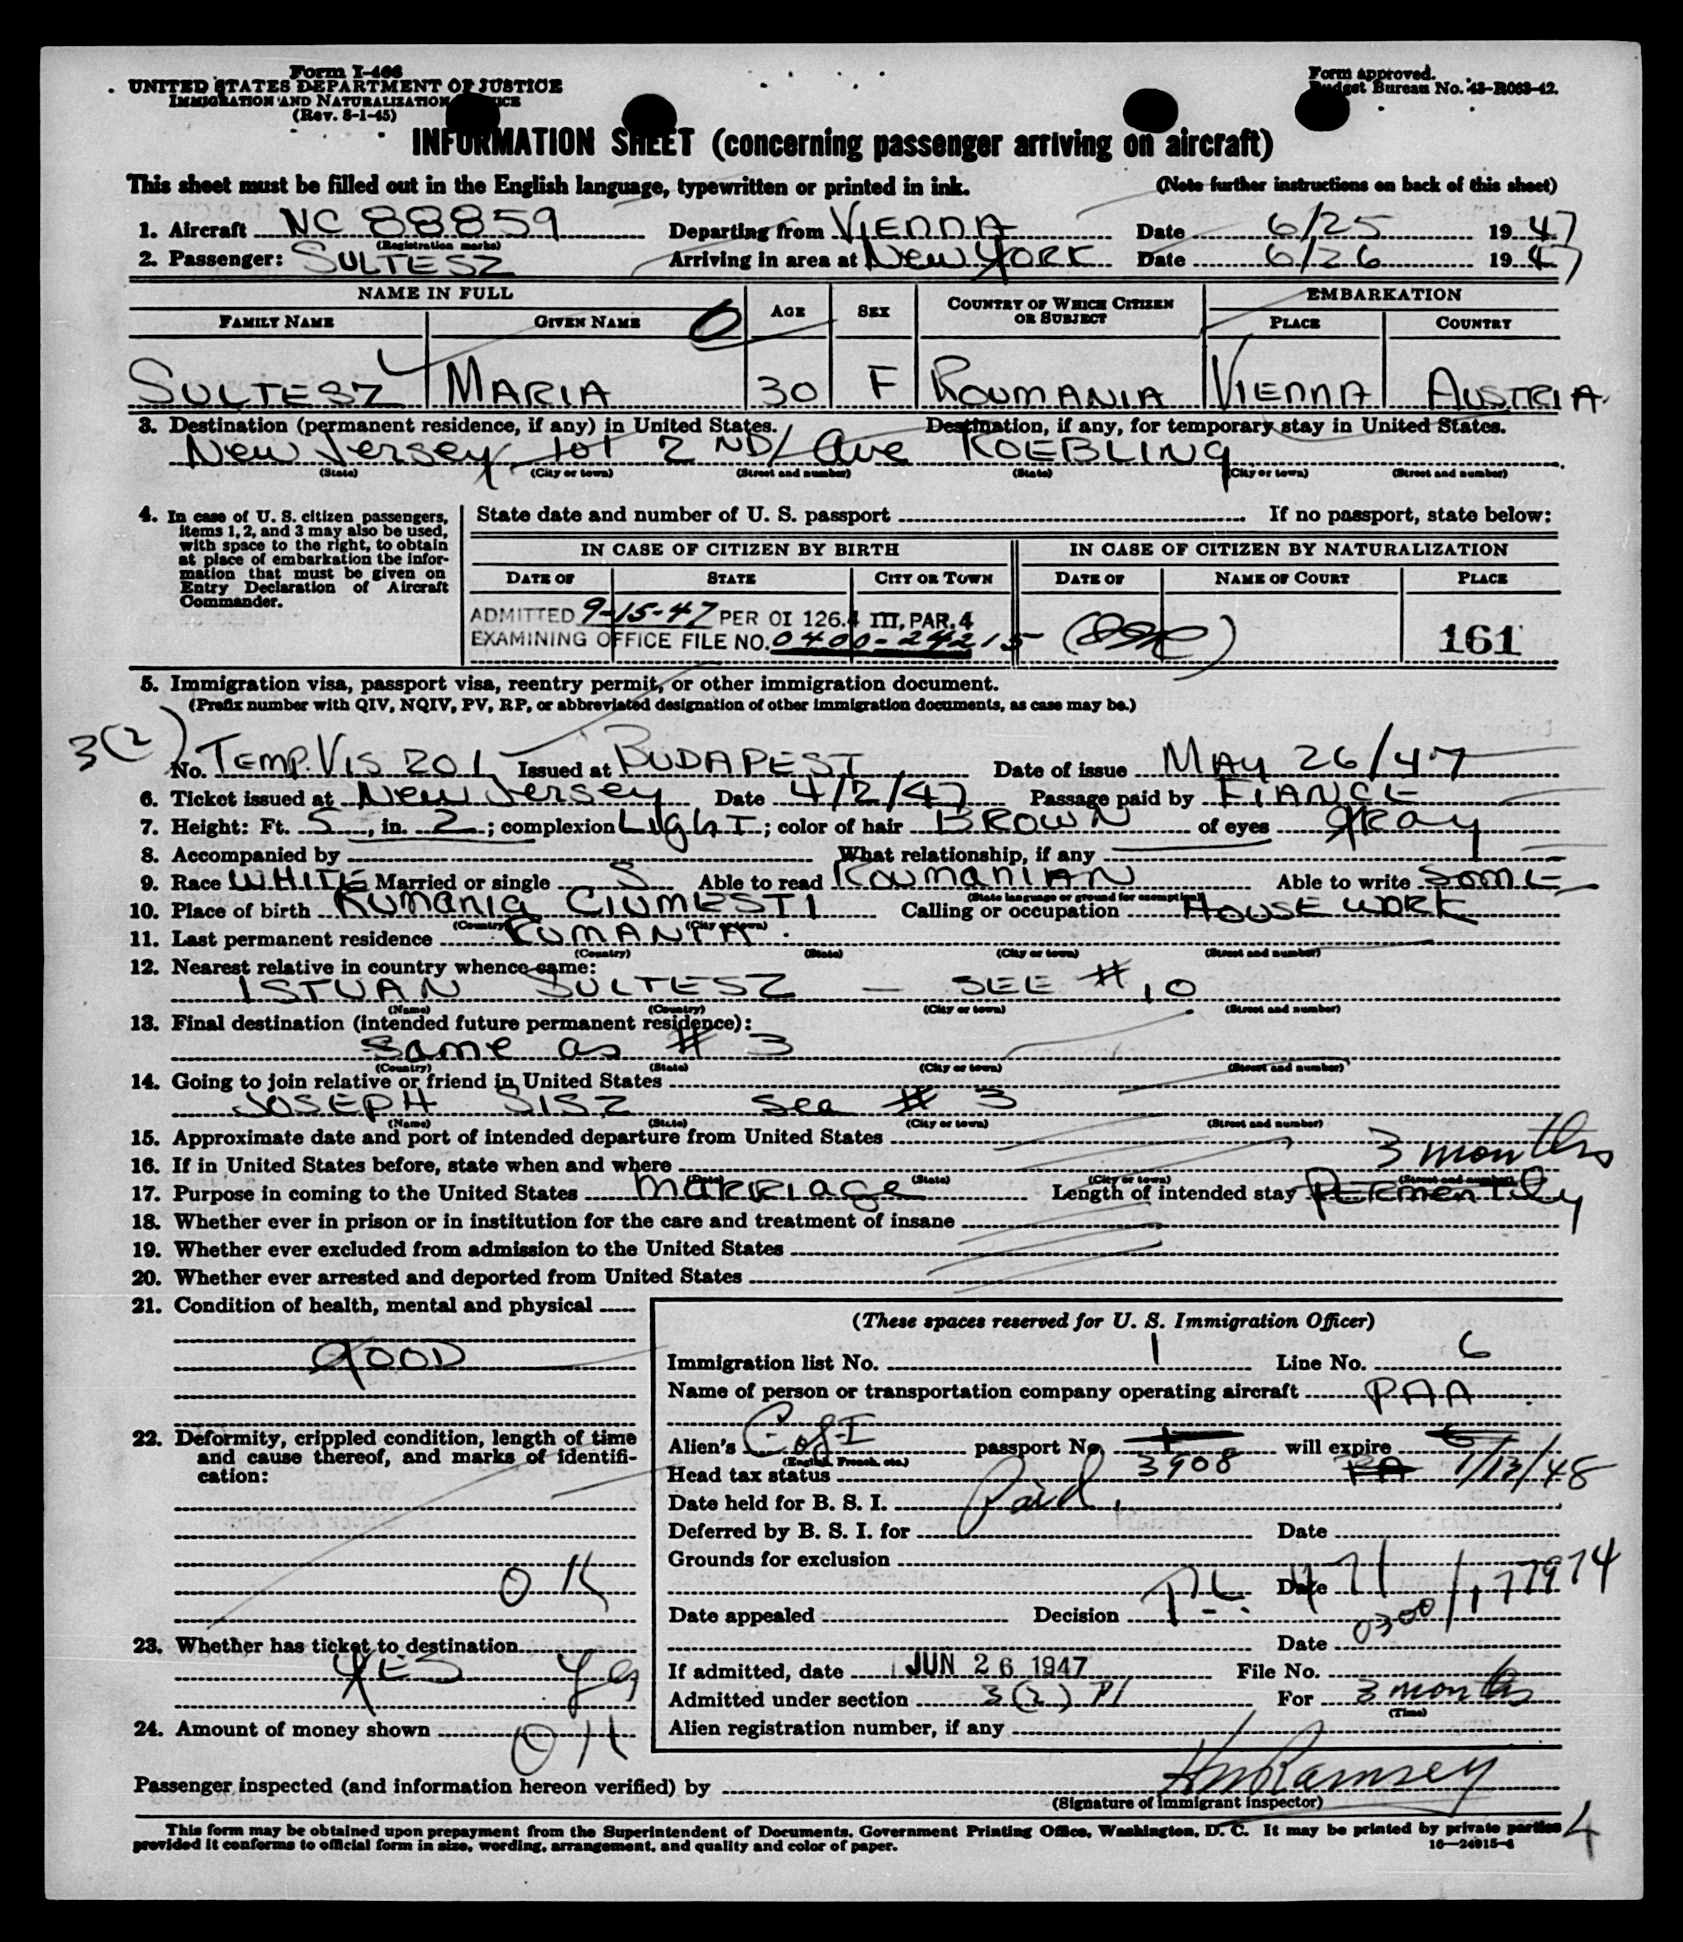 Form I-466
UNITED STATES DEPARTMENT OF JUSTICE
IMMIGRATION AND NATURALIZATION SERVICE
(Rev. 8-1-45)
Form approved.
Budget Bureau No. 43-R063-42.
INFORMATION SHEET (concerning passenger arriving on aircraft)
This sheet must be filled out in the English language, typewritten or printed in ink.
(Note further instructions on back of this sheet)
1. Aircraft NC 88859 Departing from VIENNA Date 6/25 1947
(Registration marks)
2. Passenger: SULTESZ Arriving in area at New YORK Date 6/26 1947
NAME IN FULL AGE SEX COUNTRY OF WHICH CITIZEN OR SUBJECT EMBARKATION
FAMILY NAME GIVEN NAME PLACE COUNTRY
SULTESZ MARIA 30 F ROUMANIA VIENNA AUSTRIA
3. Destination (permanent residence, if any) in United States. Destination, if any, for temporary stay in United States.
New Jersey 101 2 ND Ave ROEBLING
(State) (City or town) (Street and number) (State) (City or town) (Street and number)
4. In case of U. S. citizen passengers, items 1, 2, and 3 may also be used, with space to the right, to obtain at place of embarkation the information that must be given on Entry Declaration of Aircraft Commander.
State date and number of U. S. passport If no passport, state below:
IN CASE OF CITIZEN BY BIRTH IN CASE OF CITIZEN BY NATURALIZATION
DATE OF STATE CITY OR TOWN DATE OF NAME OF COURT PLACE
ADMITTED 9-15-47 PER OI 126.4 III, PAR. 4
EXAMINING OFFICE FILE NO. 0400-24215
161
5. Immigration visa, passport visa, reentry permit, or other immigration document.
(Prefix number with QIV, NQIV, PV, RP, or abbreviated designation of other immigration documents, as case may be.)
3(2)
No. TEMP. VIS 201 Issued at BUDAPEST Date of issue MAY 26/47
6. Ticket issued at New Jersey Date 4/2/47 Passage paid by FIANCE
7. Height: Ft. 5, in. 2; complexion LIGHT; color of hair BROWN of eyes gray
8. Accompanied by What relationship, if any
9. Race WHITE Married or single S Able to read ROUMANIAN Able to write SAME
(State language or ground for exemption)
10. Place of birth RUMANIA CIUMESTI Calling or occupation HOUSE WORK
(Country) (City or town)
11. Last permanent residence RUMANIA
(Country) (State) (City or town) (Street and number)
12. Nearest relative in country whence came:
ISTVAN SULTESZ — SEE # 10
(Name) (Country) (City or town) (Street and number)
13. Final destination (intended future permanent residence):
Same as # 3
(Country) (State) (City or town) (Street and number)
14. Going to join relative or friend in United States
JOSEPH SISZ See # 3
(Name) (State) (City or town) (Street and number)
15. Approximate date and port of intended departure from United States
3 months
16. If in United States before, state when and where
(Date) (State) (City or town) (Street and number)
17. Purpose in coming to the United States MARRIAGE Length of intended stay PERMENTLY
18. Whether ever in prison or in institution for the care and treatment of insane
19. Whether ever excluded from admission to the United States
20. Whether ever arrested and deported from United States
21. Condition of health, mental and physical
GOOD
22. Deformity, crippled condition, length of time and cause thereof, and marks of identification:
OK
23. Whether has ticket to destination
YES Yes
24. Amount of money shown OK
(These spaces reserved for U. S. Immigration Officer)
Immigration list No. 1 Line No. 6
Name of person or transportation company operating aircraft PAA
Alien's C of I passport No. 3908 will expire 1/13/48
(English, French, etc.)
Head tax status Paid
Date held for B. S. I.
Deferred by B. S. I. for Date
Grounds for exclusion
Date
0300/177974
Date appealed Decision
Date
If admitted, date JUN 26 1947 File No.
Admitted under section 3(2) For 3 months
(Time)
Alien registration number, if any
Passenger inspected (and information hereon verified) by Ramsey
(Signature of immigrant inspector)
This form may be obtained upon prepayment from the Superintendent of Documents, Government Printing Office, Washington, D. C. It may be printed by private parties
provided it conforms to official form in size, wording, arrangement, and quality and color of paper.
16—24915-4
4